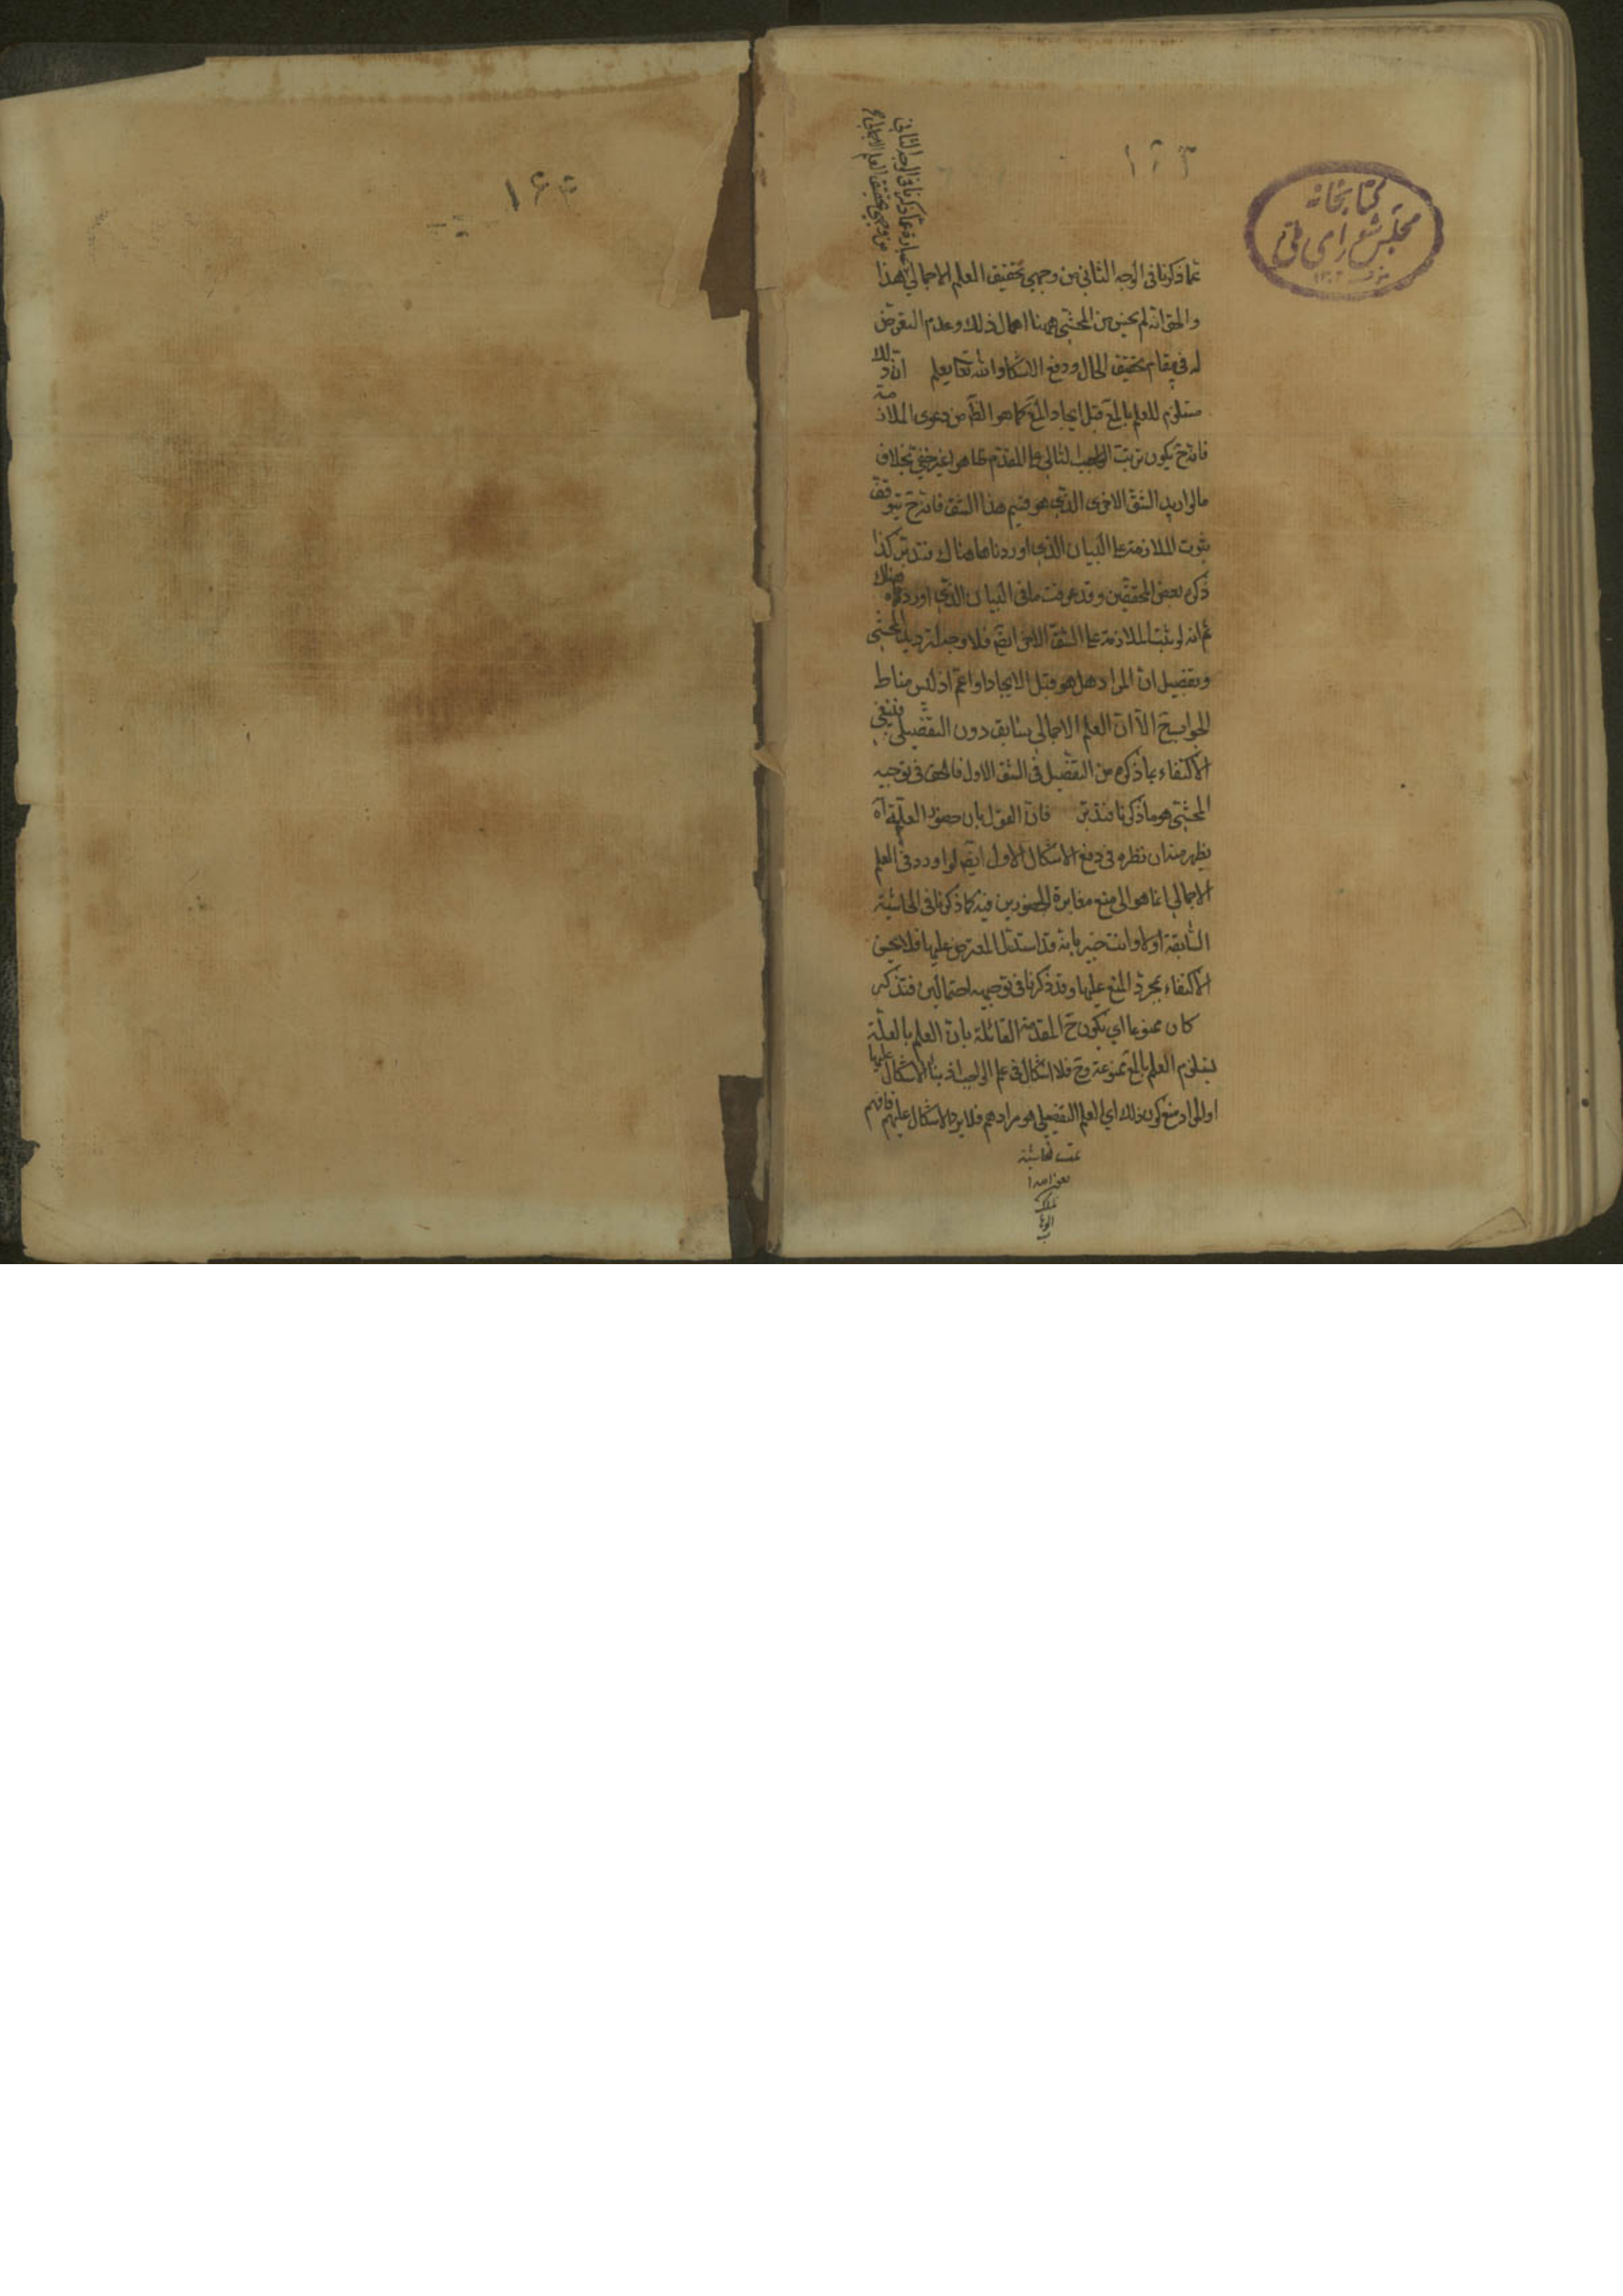 ١٦٣
كتابخانه
مجلس شورای ملی
عبارة عما ذكرنا فى الوجه الثانى
من وجهي تحقيق العلم الاجمالي
عما ذكرنا فى الوجه الثاني من وجهي تحقيق العلم الاجمالي هذا
والحق انه لم يحسن من المحشي ههنا اهمال ذلك وعدم التعرض
له في مقام تحقيق الحال ودفع الاشكال والله تعا يعلم ان ذلك
مستلزم للعلم بالمع قبل ايجاد المع كما هو الظ من دعوى الملازمة
فانه ح يكون ترتب التالى على المقدم ظاهرا غير خفي بخلاف
ما لو اريد الشق الاخرى الذي هو قسيم هذا الشق فانه ح يتوقف
ثبوت الملازمة على البيان الذي اوردناها هناك فتدبر كذا
ذكره بعض المحققين وقد عرفت ما فى البيان الذي اورده هناك
ثم انه لو ثبت الملازمة على الشق الاخر ايضا فلا وجه لترديد المحشي
وتفصيل ان المراد هل هو قبل الايجاد او اعم اذ ليس مناط
الجواب ح الا ان العلم الاجمالي سابق دون التفصيلي فينبغي
الاكتفاء بما ذكره من التفصيل فى الشق الاول فالحق فى توجيه
المحشي هو ما ذكرنا فتدبر فان القول بان حضور العلة آه
يظهر منه ان نظره فى دفع الاشكال الاول ايضا لو اورد فى العلم
الاجمالي انما هو الى منع مغايرة الحضورين فيه كما ذكرنا فى الحاشية
السابقة اولا وانت خبير بانه قد استدل المعترض عليها فلا يحسن
الاكتفاء بمجرد المنع عليها وقد ذكرنا فى توجيهه احتمالين فتذكر
كان ممنوعا اي يكون ح المقدمة القائلة بان العلم بالعلة
يستلزم العلم بالمع ممنوعة وح فلا اشكال فى علم الواجب اذ بناء الاشكال عليها
او المراد منع كون ذلك اي العلم التفصيلي هو مرادهم فلا يرد الاشكال عليهم فافهم
تمت الحاشية
الملك
الوهاب
١٦٤